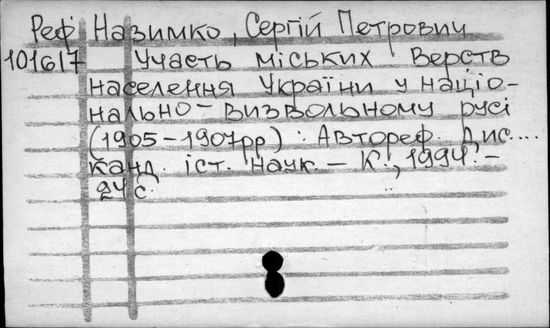 Реф Назимко, Сергій Петрович
101617 Участь міських верств
населення України у націо-
нально-визвольному русі
(1905-1907рр) : Автореф. Дис....
канд. іст. наук. - К., 1994. -
24 с.